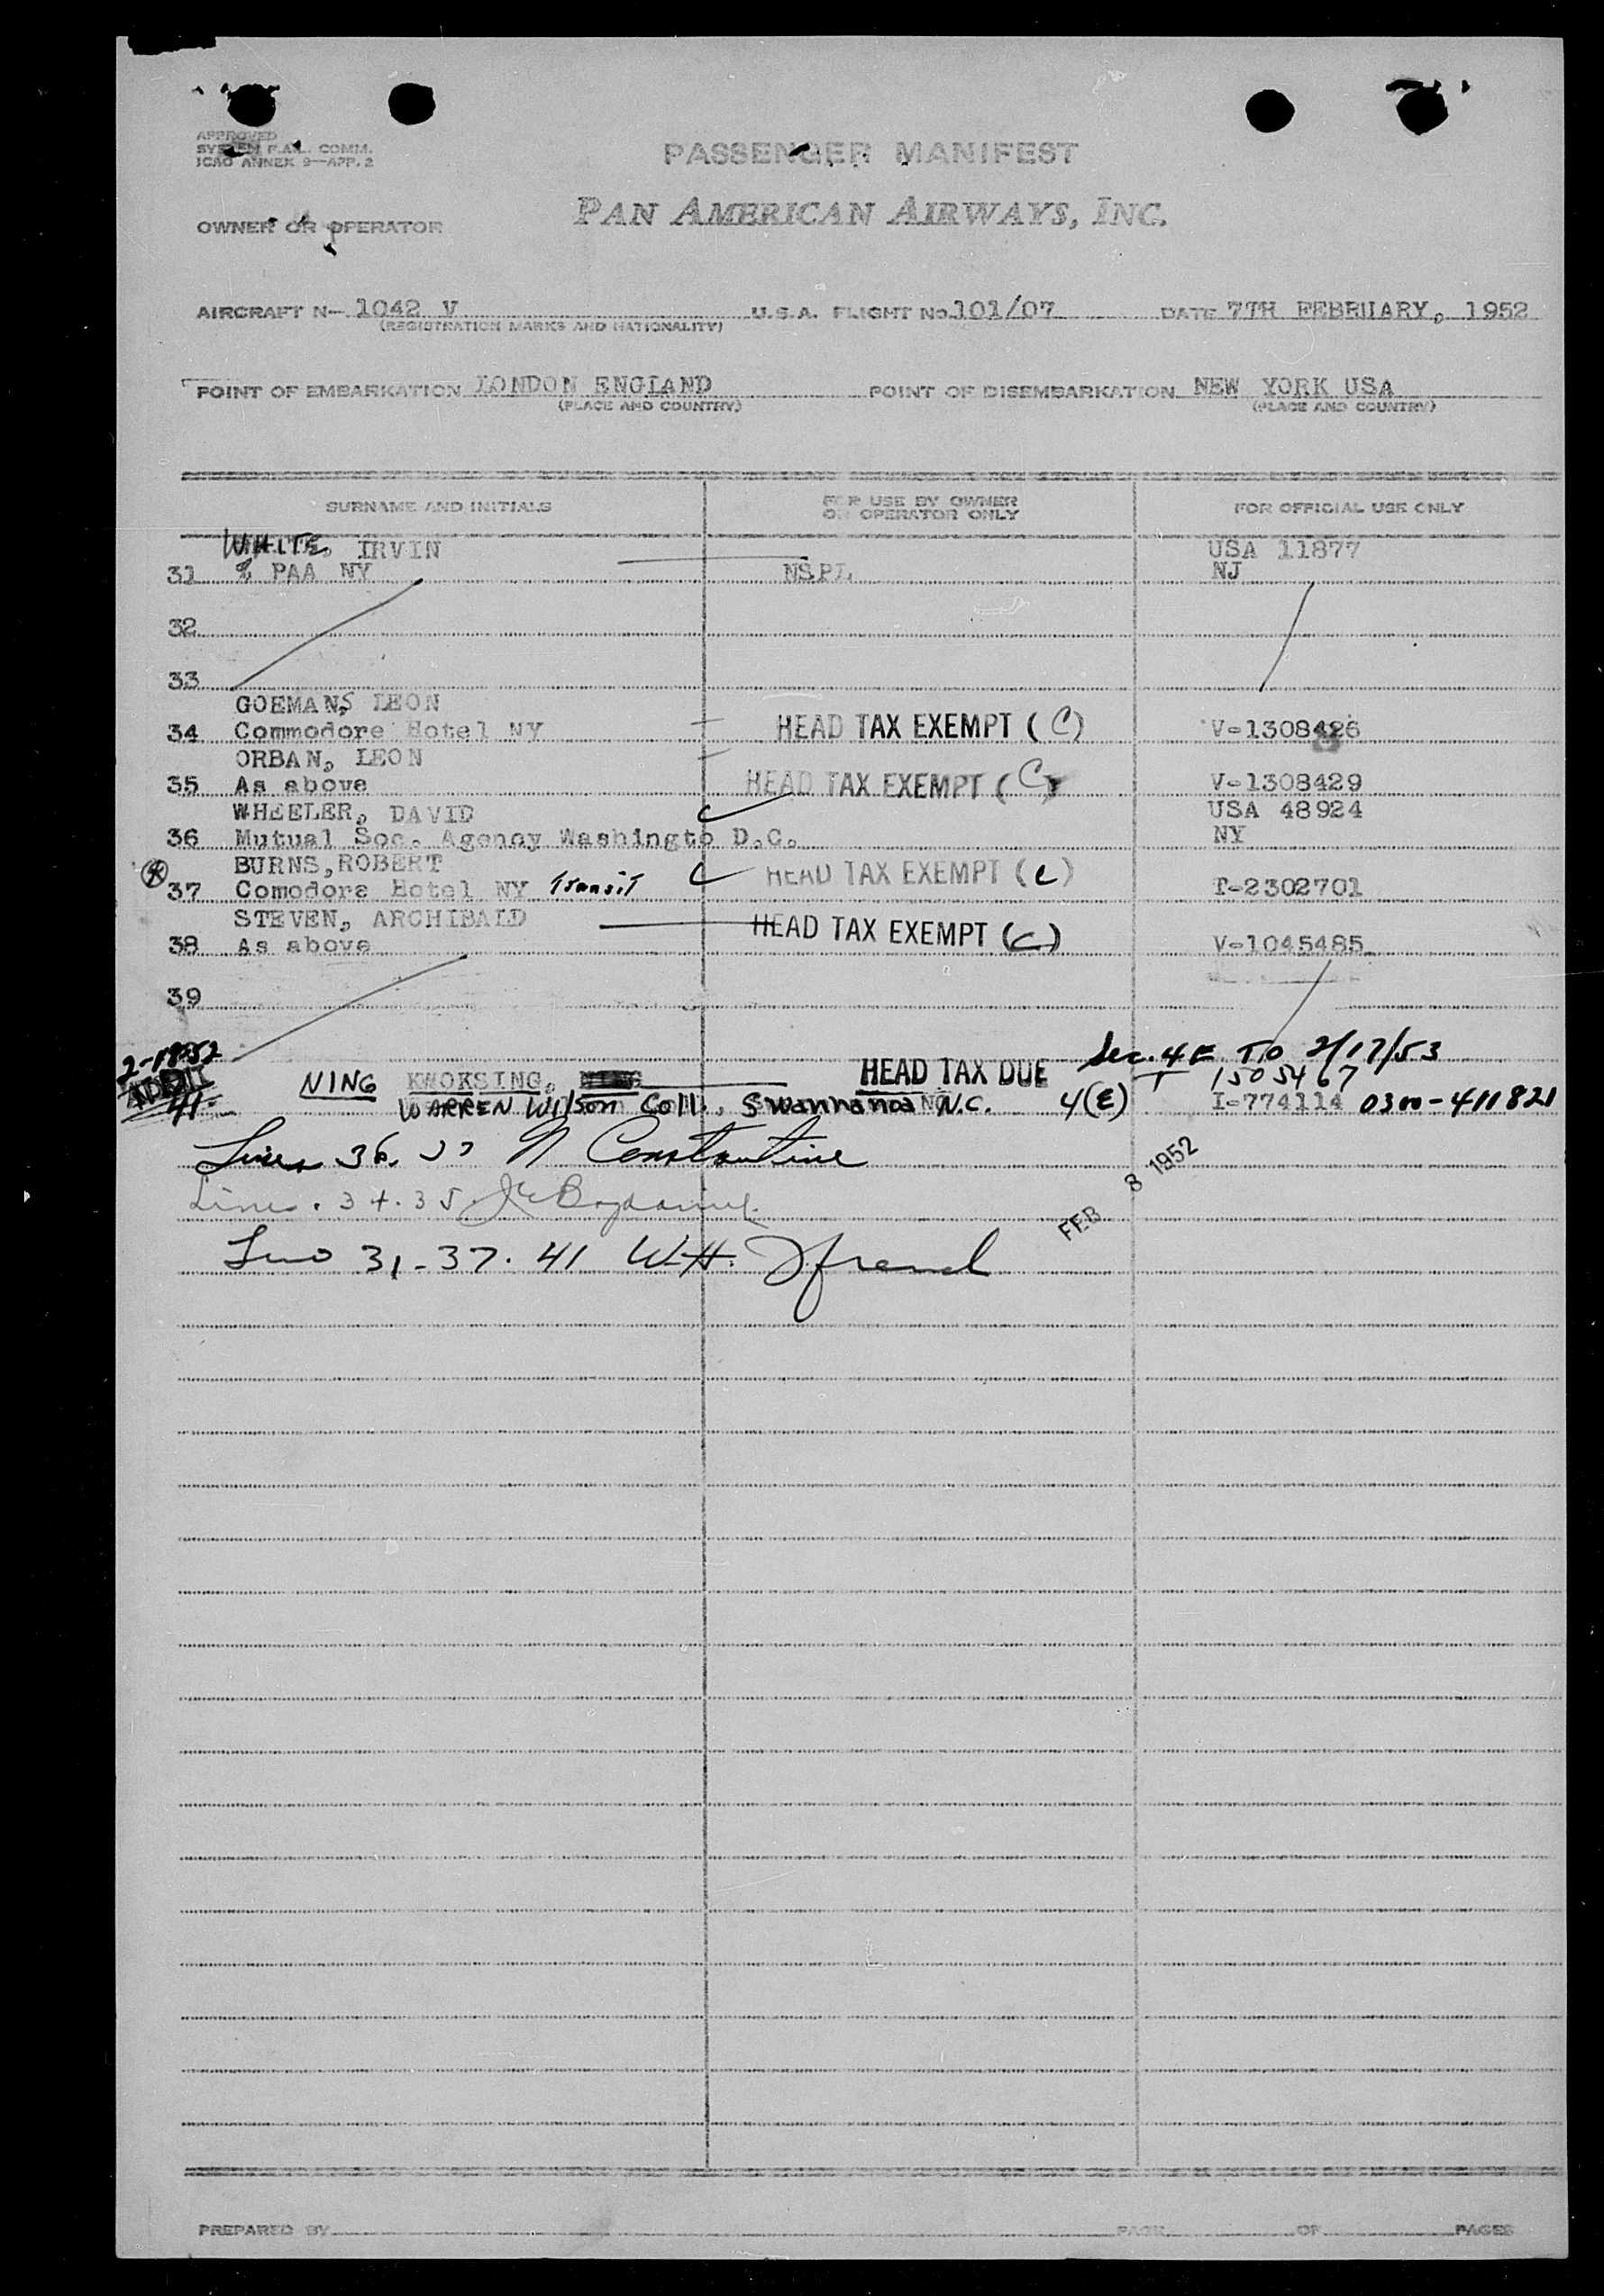 APPROVED
SYSTEM F.A.L. COMM.
ICAO ANNEX 9—APP. 2
PASSENGER MANIFEST
OWNER OR OPERATOR PAN AMERICAN AIRWAYS, INC.
AIRCRAFT N— 1042 V U.S.A. FLIGHT No. 101/07 DATE 7TH FEBRUARY, 1952
(REGISTRATION MARKS AND NATIONALITY)
POINT OF EMBARKATION LONDON ENGLAND POINT OF DISEMBARKATION NEW YORK USA
(PLACE AND COUNTRY) (PLACE AND COUNTRY)
SURNAME AND INITIALS FOR USE BY OWNER OR OPERATOR ONLY FOR OFFICIAL USE ONLY
WHITE, IRVIN USA 11877
31 % PAA NY NSPL NJ
32
33
GOEMANS, LEON
34 Commodore Hotel NY HEAD TAX EXEMPT (C) V-1308426
ORBAN, LEON
35 As above HEAD TAX EXEMPT (C) V-1308429
WHEELER, DAVID USA 48924
36 Mutual Sec. Agency Washingto D.C. NY
BURNS, ROBERT
37 Comodore Hotel NY Transit HEAD TAX EXEMPT (C) T-2302701
STEVEN, ARCHIBALD
38 As above HEAD TAX EXEMPT (C) V-1045485
39
2-1852 Sec. 4E TO 2/17/53
NING KWOKSING, HEAD TAX DUE 1505467
41 WARREN Wilson Coll., Swannanoa N.C. 4(E) I-774114 0300-411821
Lines 36. N Constantine
FEB 8 1952
Lines. 34.35
31-37. 41 W.H.
PREPARED BY PAGE OF PAGES